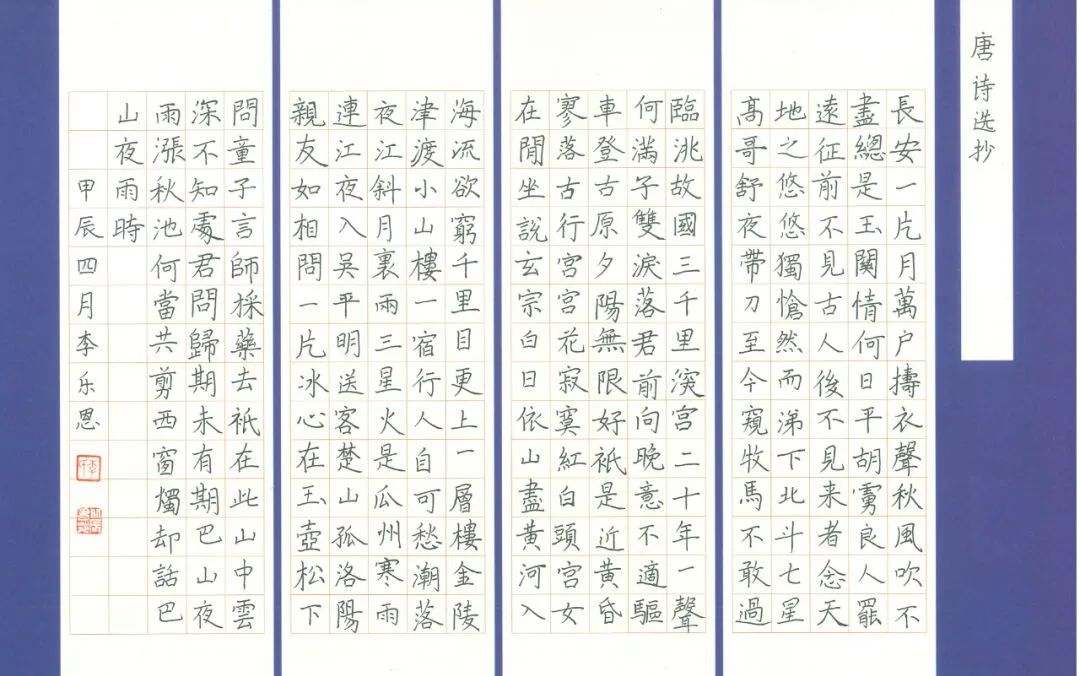 唐诗选抄
長安一片月萬户擣衣聲秋風吹不
盡總是玉関情何日平胡虜良人罷
遠征前不見古人後不見来者念天
地之悠悠獨愴然而涕下北斗七星
髙哥舒夜帶刀至今窺牧馬不敢過
臨洮故國三千里深宫二十年一聲
何滿子雙淚落君前向晚意不適驅
車登古原夕陽無限好衹是近黄昏
寥落古行宫宫花寂寞紅白頭宫女
在閒坐説玄宗白日依山盡黄河入
海流欲窮千里目更上一層樓金陵
津渡小山樓一宿行人自可愁潮落
夜江斜月裏兩三星火是瓜州寒雨
連江夜入吴平明送客楚山孤洛陽
親友如相問一片冰心在玉壺松下
問童子言師採藥去衹在此山中雲
深不知處君問歸期未有期巴山夜
雨漲秋池何當共剪西窗燭却話巴
山夜雨時
甲辰四月李乐恩